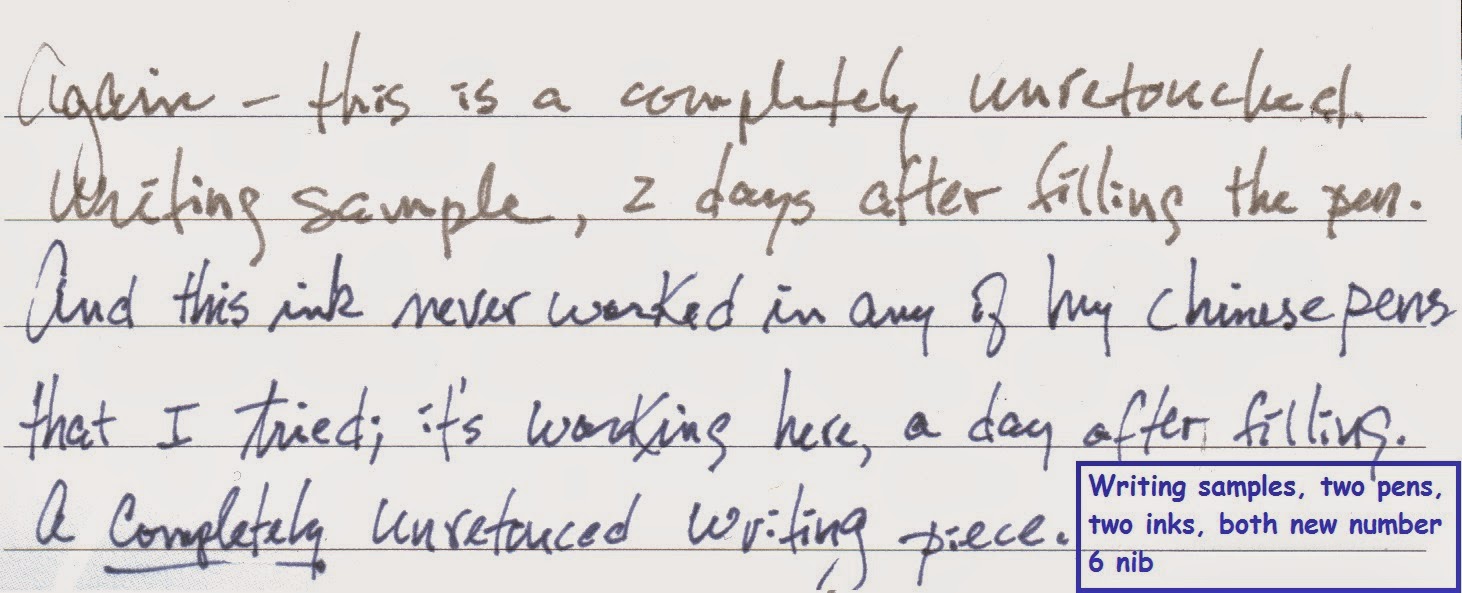 Again - this is a completely unretouched.
Writing sample, 2 days after filling the pen.
And this ink never worked in any of my Chinese pens
that I tried; it's working here, a day after filling.
A Completely unretouced writing piece.
Writing samples, two pens,
two inks, both new number
6 nib